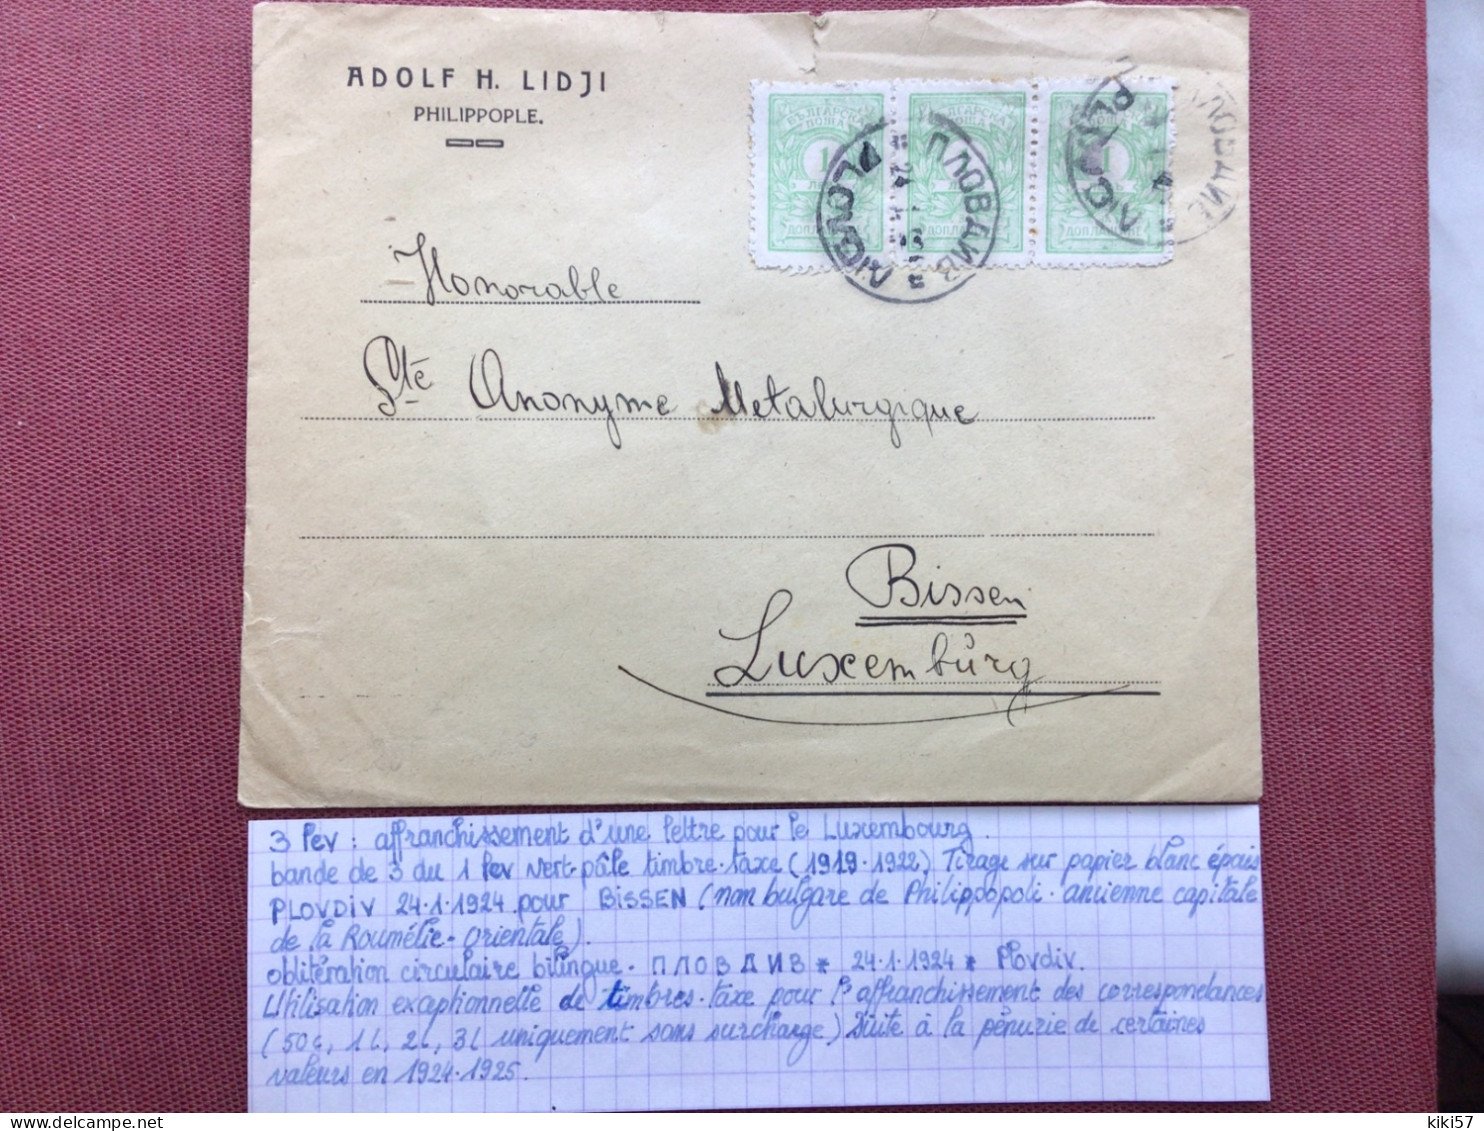 ADOLF H. LIDJI
PHILIPPOPLE.
БЪЛГАРСКА ПОЩА
1
ДОПЛАЩАНЕ
БЪЛГАРСКА ПОЩА
ДОПЛАЩАНЕ
БЪЛГАРСКА ПОЩА
1
ДОПЛАЩАНЕ
ПЛОВДИВ
PLOVDIV
ПЛОВДИВ
PLOVDIV
Honorable
Sté Anonyme Metalurgique
Bissen
Luxembûrg
3 lev : affranchissement d'une lettre pour le Luxembourg.
bande de 3 du 1 lev vert-pâle timbre-taxe (1919.1922) Tirage sur papier blanc épais
PLOVDIV 24.1.1924 pour BISSEN (nom bulgare de Philippopoli. ancienne capitale
de la Roumélie-Orientale).
oblitération circulaire bilingue. ПЛОВДИВ * 24.1.1924 * Plovdiv.
Utilisation exceptionnelle de timbres-taxe pour l'affranchissement des correspondances
(50c, 1l, 2l, 3l uniquement sans surcharge) Suite à la pénurie de certaines
valeurs en 1924.1925.
kiki57